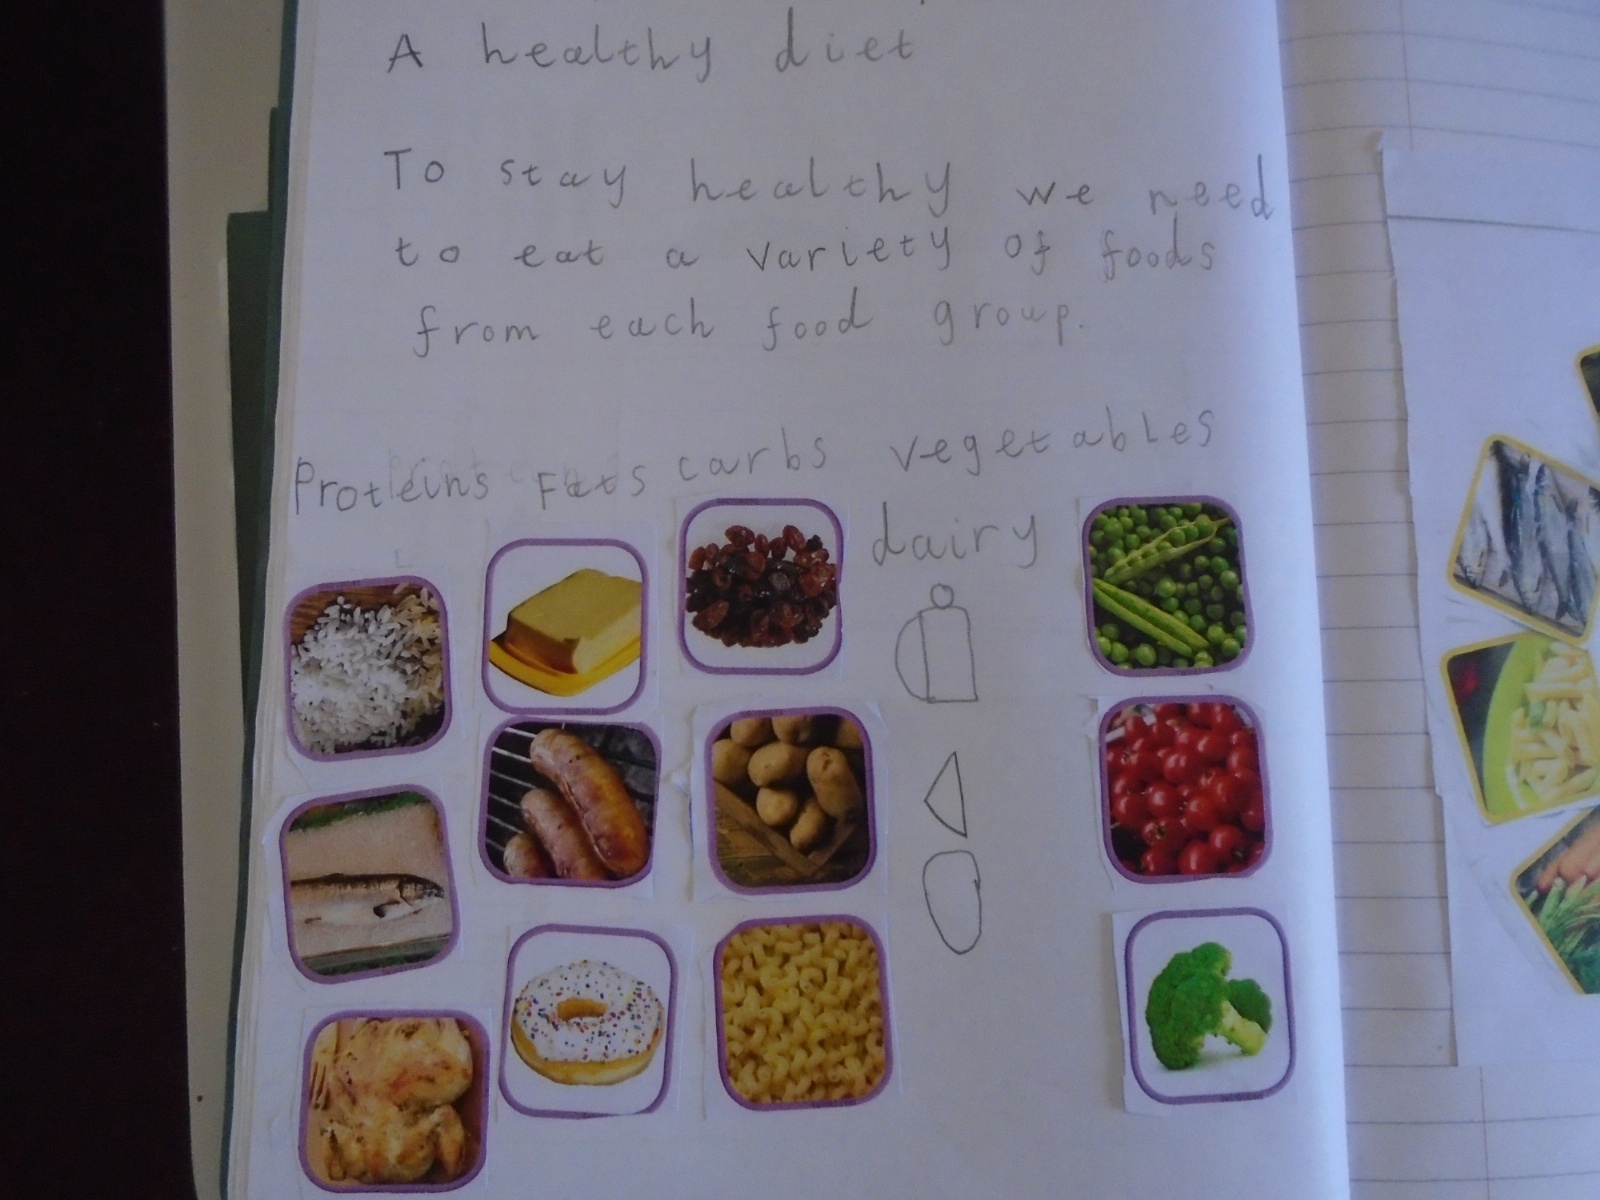 A healthy diet
To stay healthy we need
to eat a variety of foods
from each food group.
Proteins Fats carbs vegetables
dairy